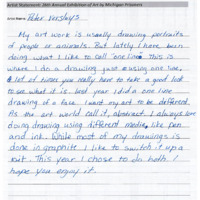 Artist Statement: 26th Annual Exhibition of Art by Michigan Prisoners
Artist Name: Peter Versluys
My art work is usually drawing portraits
of people or animals. But lately I have been
doing what I like to call "one line". This is
where I do a drawing just using one line.
A lot of times you really have to take a good look
to see what it is. Last year I did a one line
drawing of a face. I want my art to be different.
As the art world call it, abstract. I always love
doing drawing using different media, like pen
and ink. While most of my drawings is
done in graphite I like to switch it up a
bit. This year I chose to do both. I
hope you enjoy it.